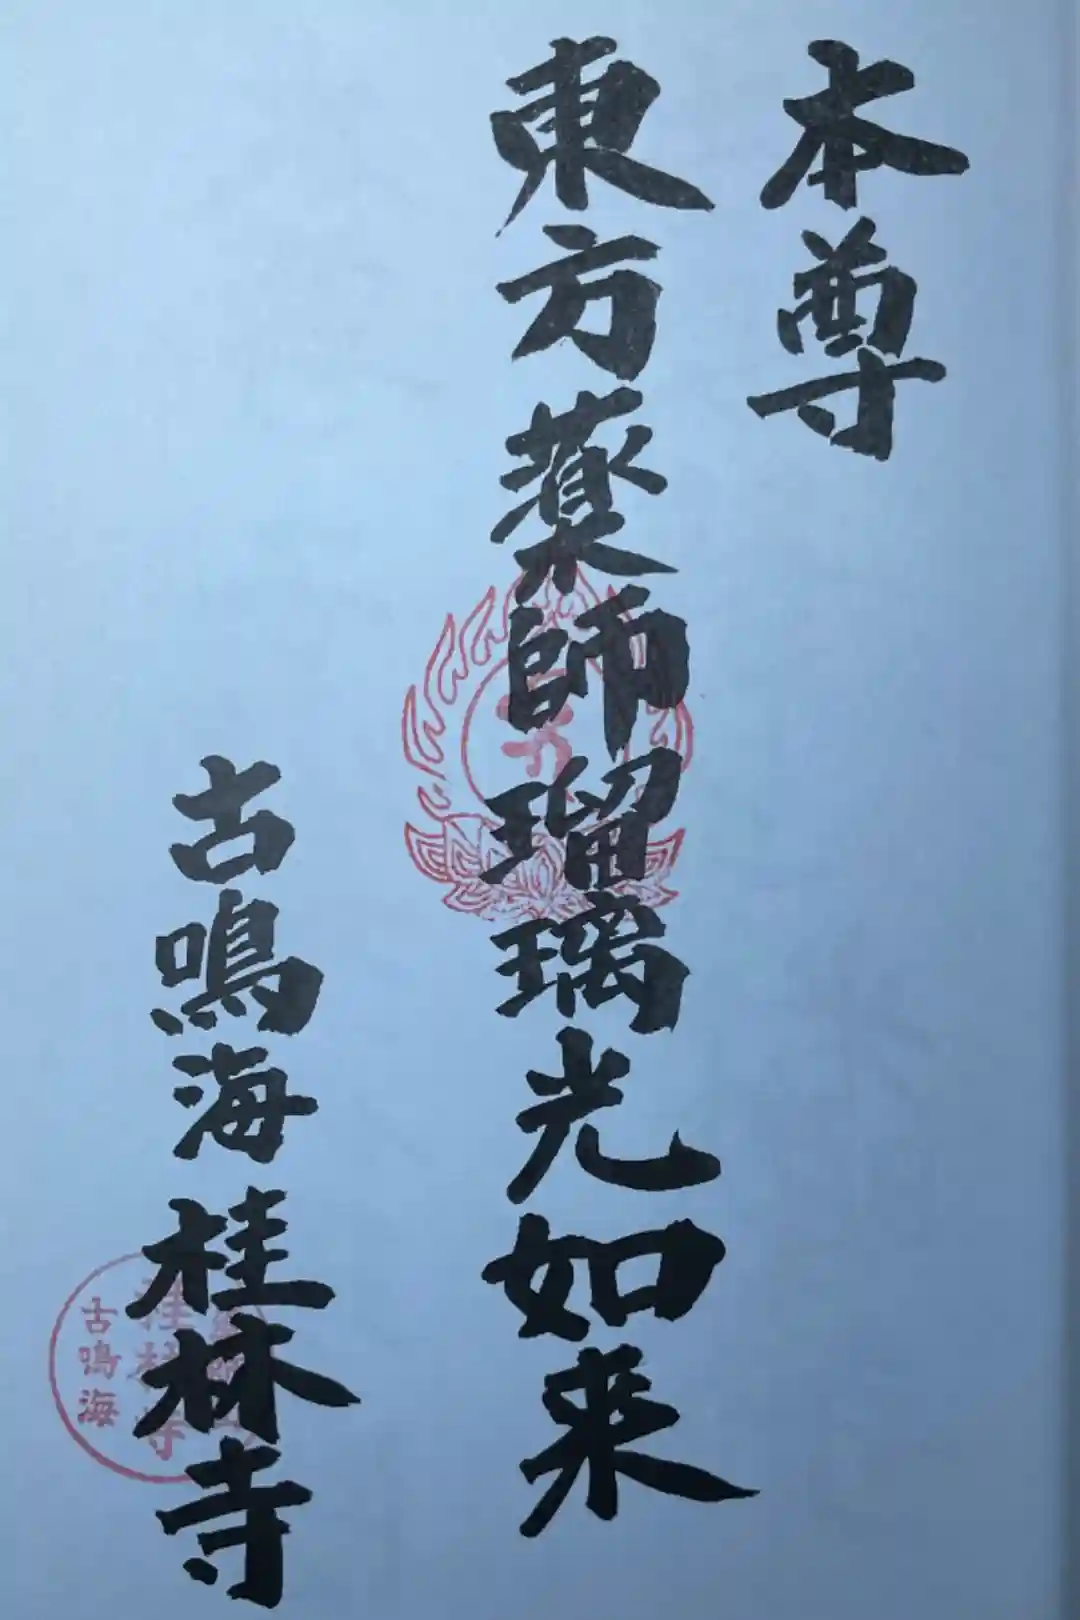 本尊
東方薬師瑠璃光如来
古鳴海桂林寺
桂林寺
古鳴海